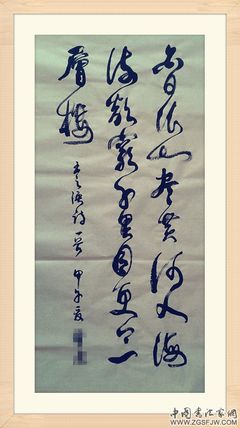 白日依山盡黄河入海
流欲窮千里目更上一
層樓
王之涣诗一首 甲午夏
中国书法家网
WWW.ZGSFJW.COM